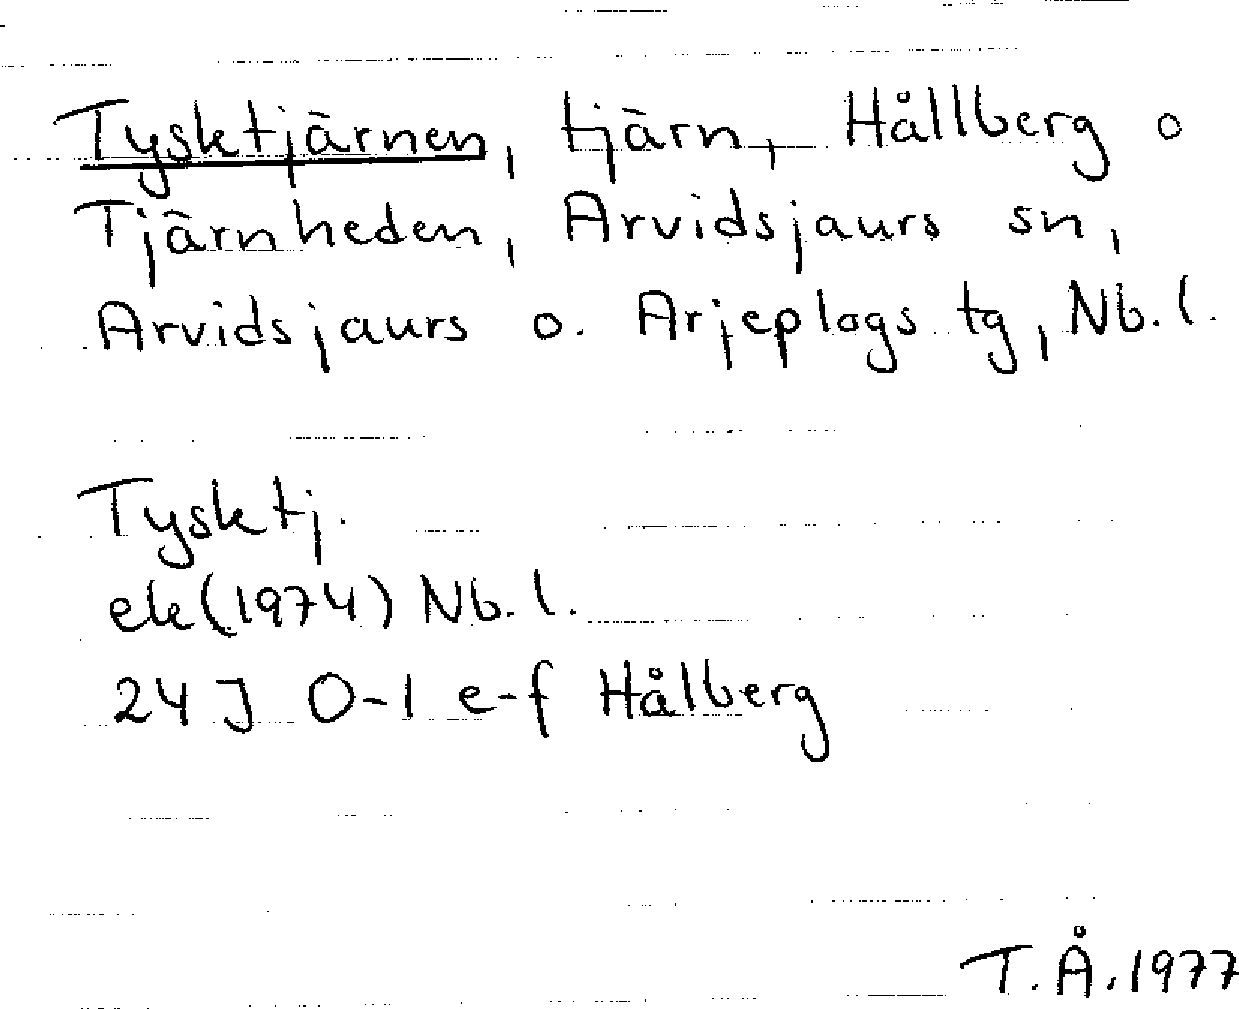 Tysktjärnen, tjärn, Hållberg o
Tjärnheden, Arvidsjaurs sn,
Arvidsjaurs o. Arjeplogs tg, Nb. l.
Tysktj.
ek (1974) Nb. l.
24 J 0-1 e-f Hålberg
T. Å. 1977